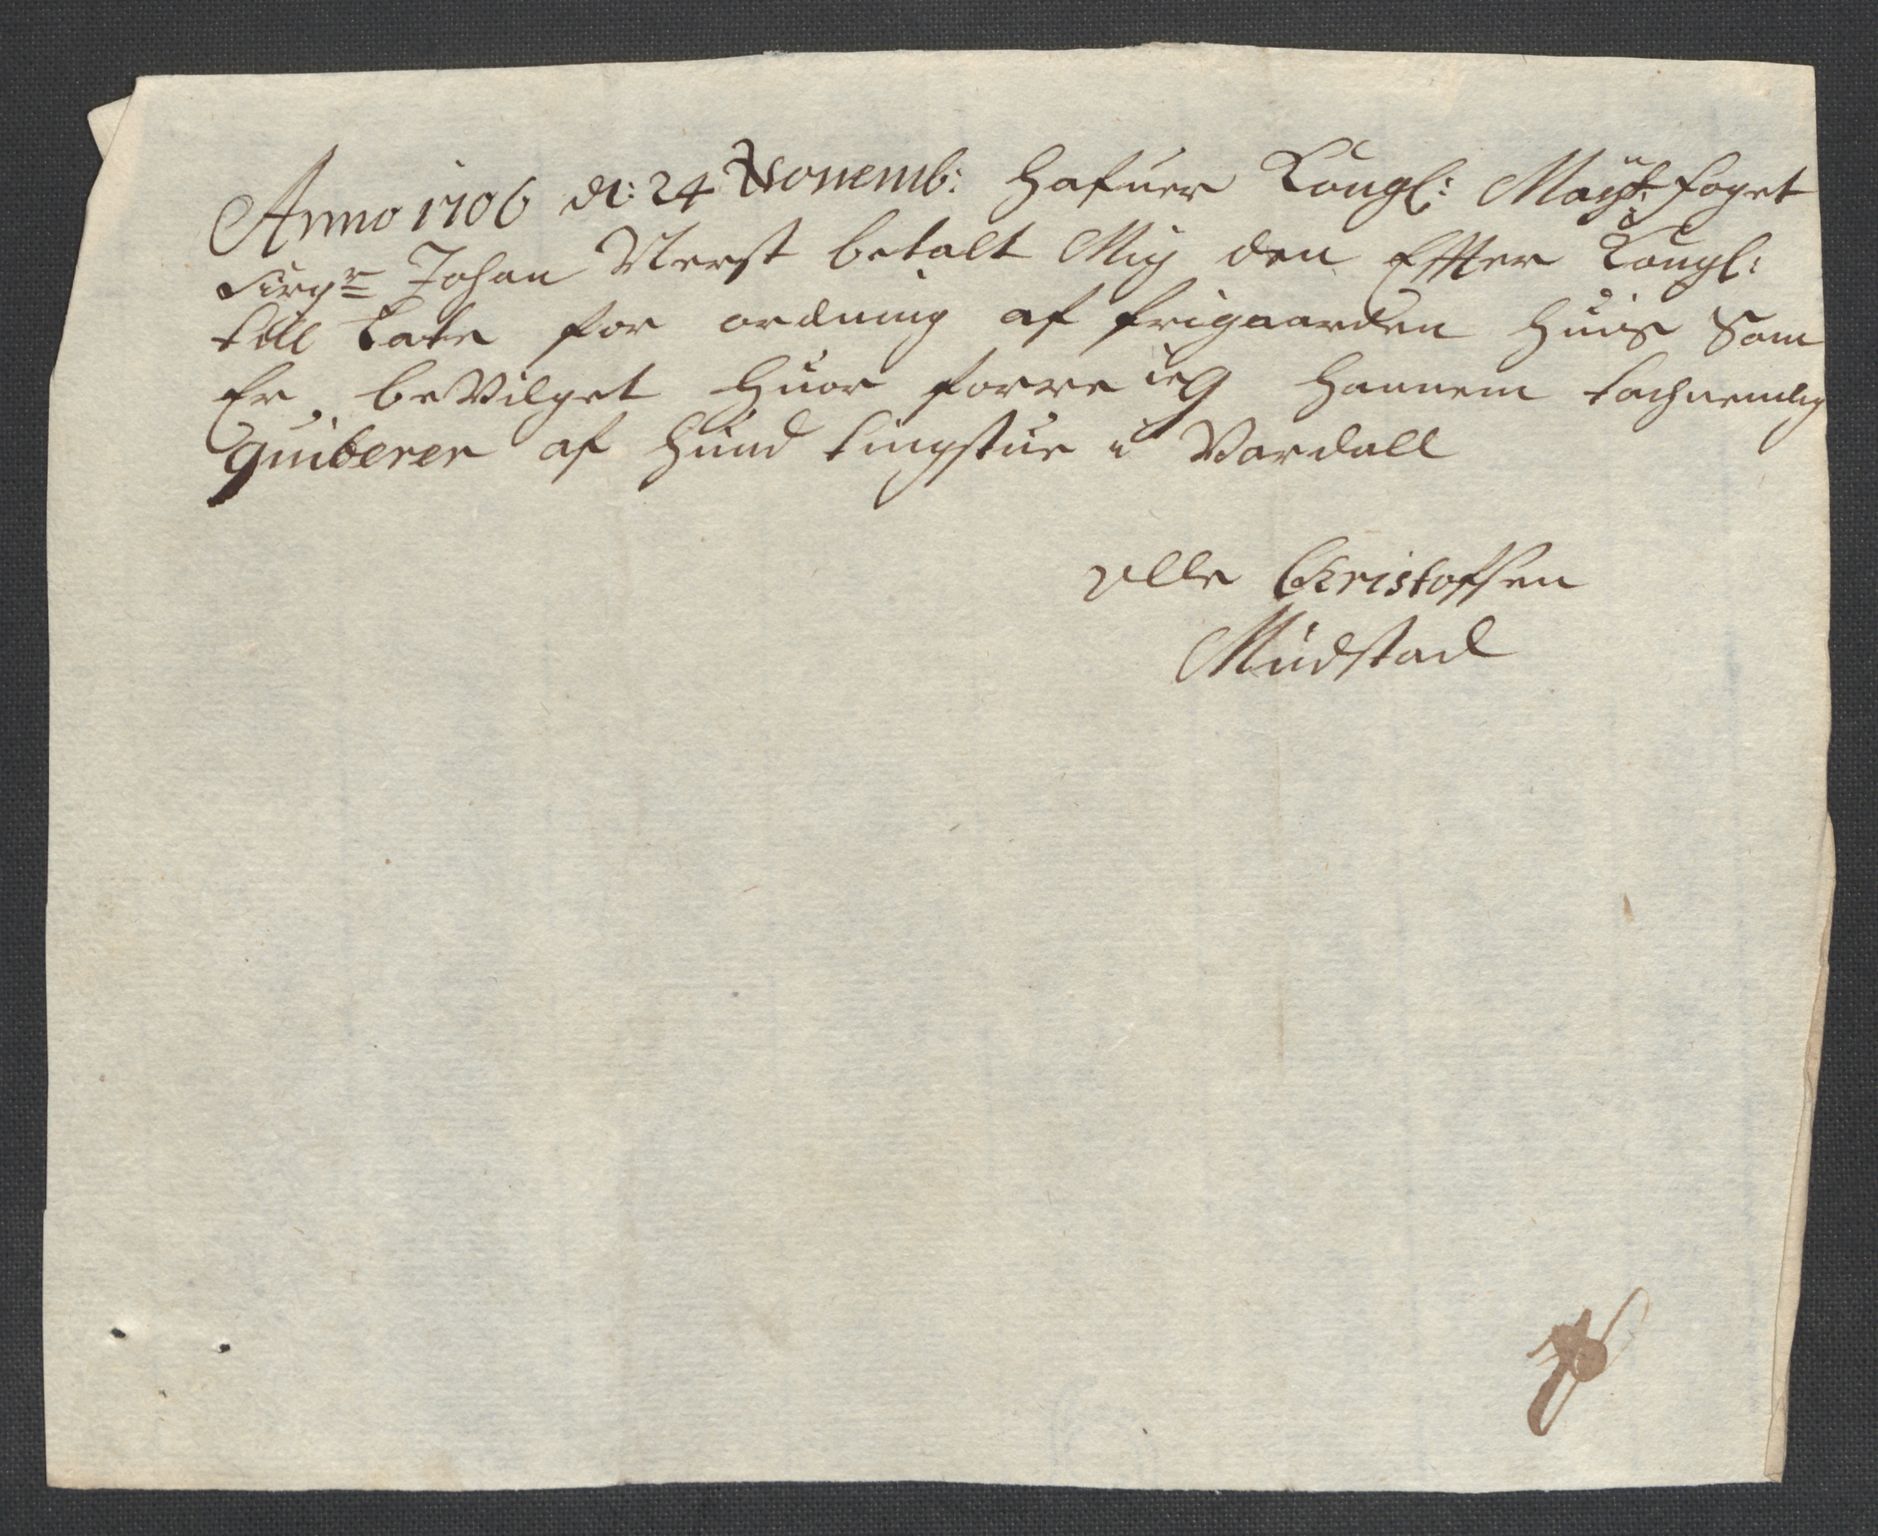 Anno 1706 d: 24 Novemb: Hafuer Kongl: Mayst: foget
Sinr Johan Nerst betalt Mig den Effter Kongl:
till late for ordning af frigaarden Huis Som
Er beVilget Huor forre ieg Hannem tachnemlig
quiterer af Hund tingstue i Vardall
Olle Christoffsen
Mudstad